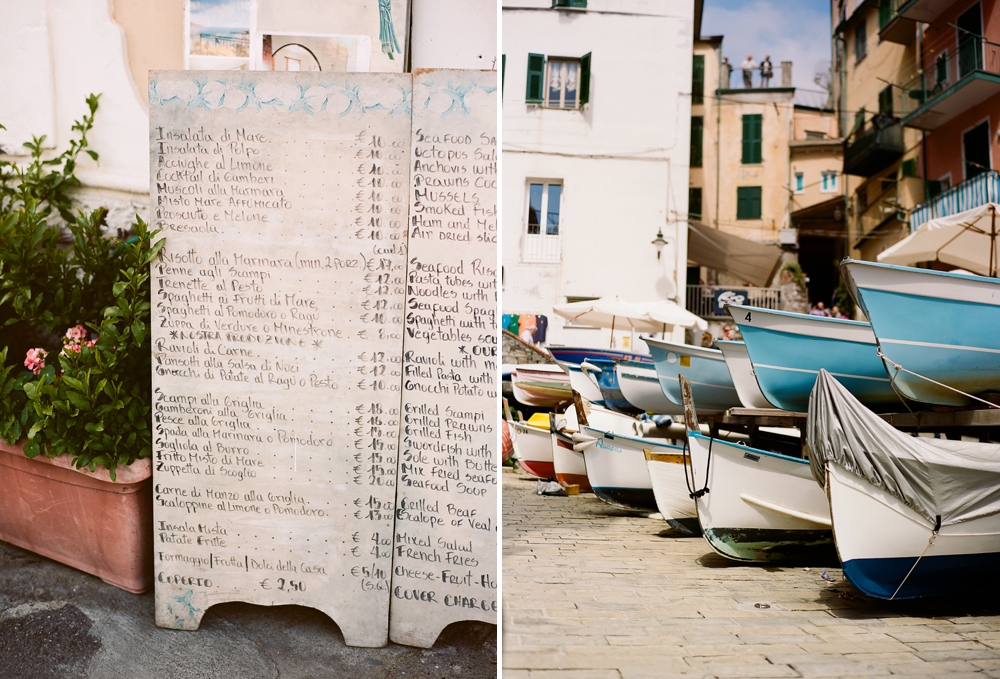 Insalata di Mare € 10.00
Insalata di Polpo € 10.00
Acciughe al Limone € 10.00
Cocktail di Gamberi € 10.00
Muscoli alla Marinara € 10.00
Misto Mare Affumicato € 10.00
Prosciuto e Melone € 10.00
Bresaola € 10.00
Risotto alla Marinara (min. 2 porz.) €
Penne agli Scampi € 12.00
Trenette al Pesto € 12.00
Spaghetti ai Frutti di Mare € 12.00
Spaghetti al Pomodoro o Ragù € 10.00
Zuppa di Verdure o Minestrone € 8.00
* NOSTRA PRODUZIONE *
Ravioli di Carne € 12.00
Pansotti alla Salsa di Noci € 12.00
Gnocchi di Patate al Ragù o Pesto € 10.00
Scampi alla Griglia €
Gamberoni alla Griglia €
Pesce alla Griglia €
Spada alla Marinara o Pomodoro €
Sogliola al Burro €
Fritto Misto di Mare €
Zuppetta di Scoglio € 20.00
Carne di Manzo alla Griglia € 15.00
Scaloppine al Limone o Pomodoro € 13.00
Insala Mista € 4.00
Patate Fritte € 4.00
Formaggio/Frutta/Dolci della Casa € 5/10
COPERTO € 2,50 (S.Q.)
SEAFOOD SA
Octopus Sala
Anchovis with
Prawns Coc
MUSSELS
Smoked Fish
Ham and Mel
Air dried slic
Seafood Riso
Pasta tubes wit
Noodles with
Seafood Spag
Spaghetti with t
Vegetables sou
* OUR
Ravioli with m
Filled Pasta with
Gnocchi Potato w
Grilled Scampi
Grilled Prawns
Grilled Fish
Swordfish with
Sole with Butte
Mix fried seafo
Seafood Soup
Grilled Beaf
Escalope of Veal
Mixed Salad
French Fries
Cheese-Fruit-Ho
COVER CHARGE
4